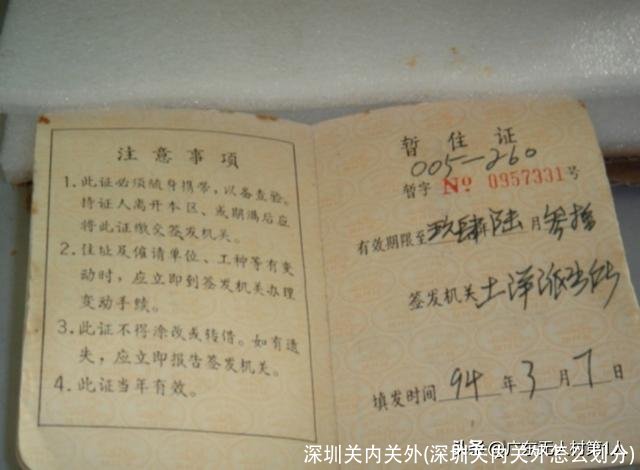 注意事項
1. 此证必须随身携带，以备查验。
持证人离开本区、或期满后应
将此证缴交签发机关。
2. 住址及僱请单位、工种等有变
动时，应立即到签发机关办理
变动手续。
3. 此证不得涂改或转借。如有遗
失，应立即报告签发机关。
4. 此证当年有效。
暂住证
005-260
暂字 No 0957331号
有效期限至玖肆陆月叁拾
签发机关土洋派出所
填发时间 94 年 3 月 7 日
头条 @广东无人村第1人
深圳关内关外(深圳关内关外怎么划分)